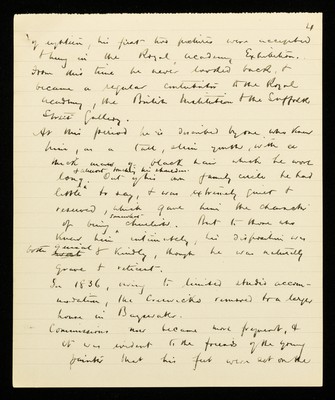 4
of eighteen, his first two pictures were accepted
& hung in the Royal Academy Exhibition.
From this time he never looked back, &
became a regular contributor to the Royal
Academy, the British Institution & the Suffolk
Street Gallery.
At this period he is described by one, who knew
him, as a tall, slim youth, with a
thick mass of black hair which he wore
& almost touching his shoulders.
long. Out of his own family circle he had
little to say, & was extremely quiet &
reserved, which gave him the character
somewhat
of being churlish. But to those who
knew him intimately, his disposition was
both genial & kindly, though he was naturally
grave & reticent.
In 1836, owing to limited studio accom-
modation, the removed to a larger
house in Bayswater.
Commissions now became more frequent, &
it was evident to the friends of the young
painter that his feet were set on the